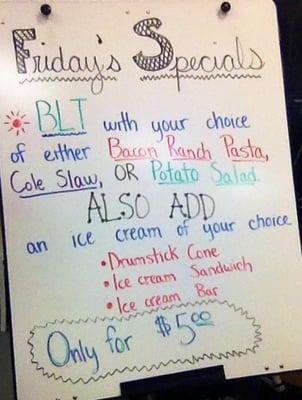 Friday's Specials
BLT with your choice
of either Bacon Ranch Pasta,
Cole Slaw, OR Potato Salad.
ALSO ADD
an ice cream of your choice
• Drumstick Cone
• Ice cream Sandwich
• Ice cream Bar
Only for $5.00